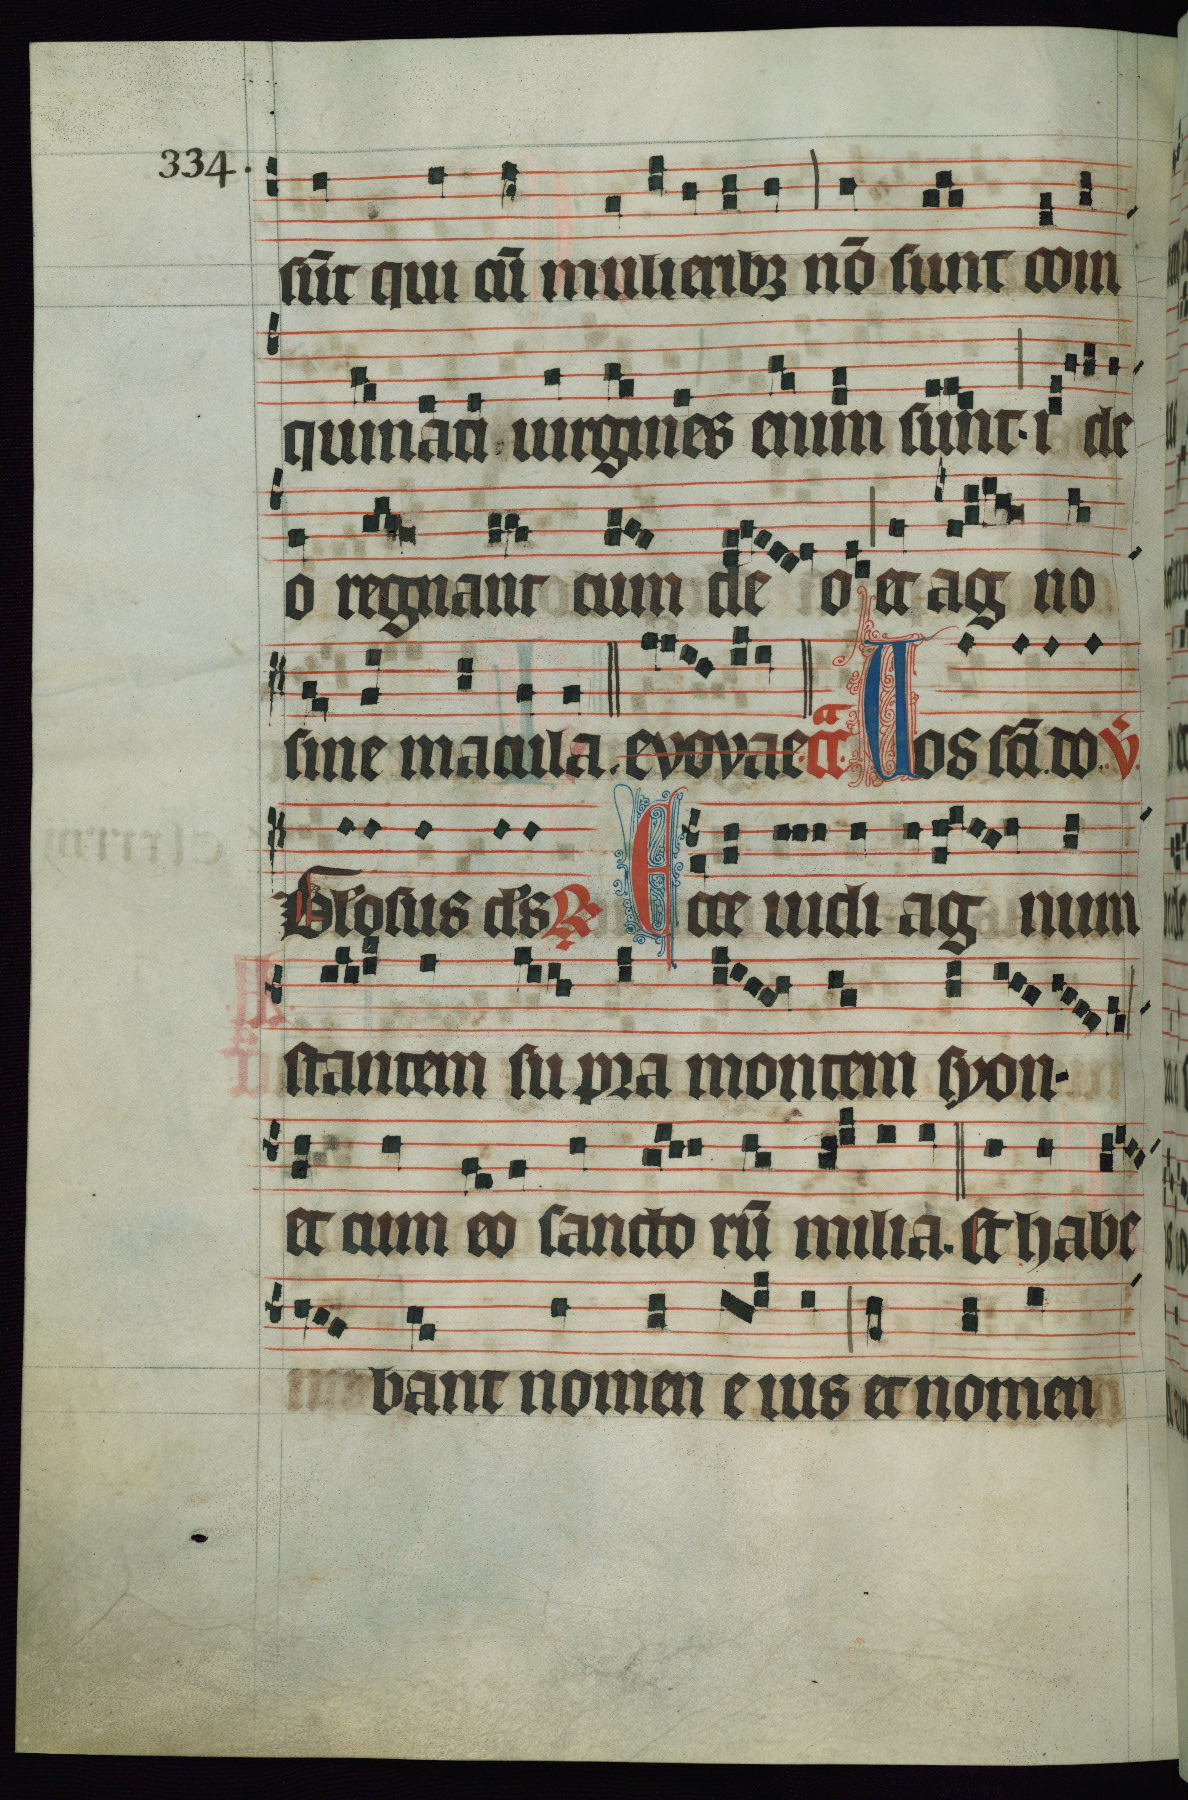 334.
sūt qui cū mulieribꝫ nō sunt coin
quinati uirgines enim sunt. i de
o regnant cum de o et ag no
sine macula. evovae a Vos sc̄i. do. v̄.
Glosus ds R̷ Ecce uidi ag num
stantem su pra montem syon.
et cum eo sancto rū milia. Et habe
bant nomen e ius et nomen